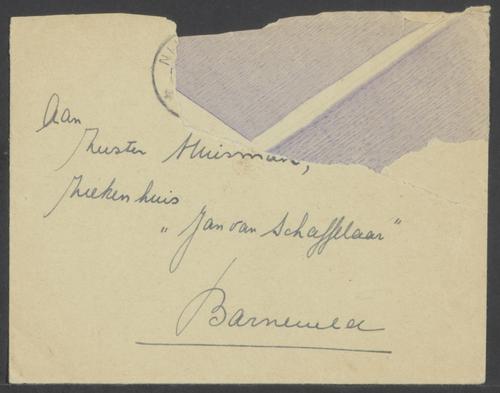 Aan
Zuster Huisman,
Ziekenhuis
„Jan van Schaffelaar"
Barneveld